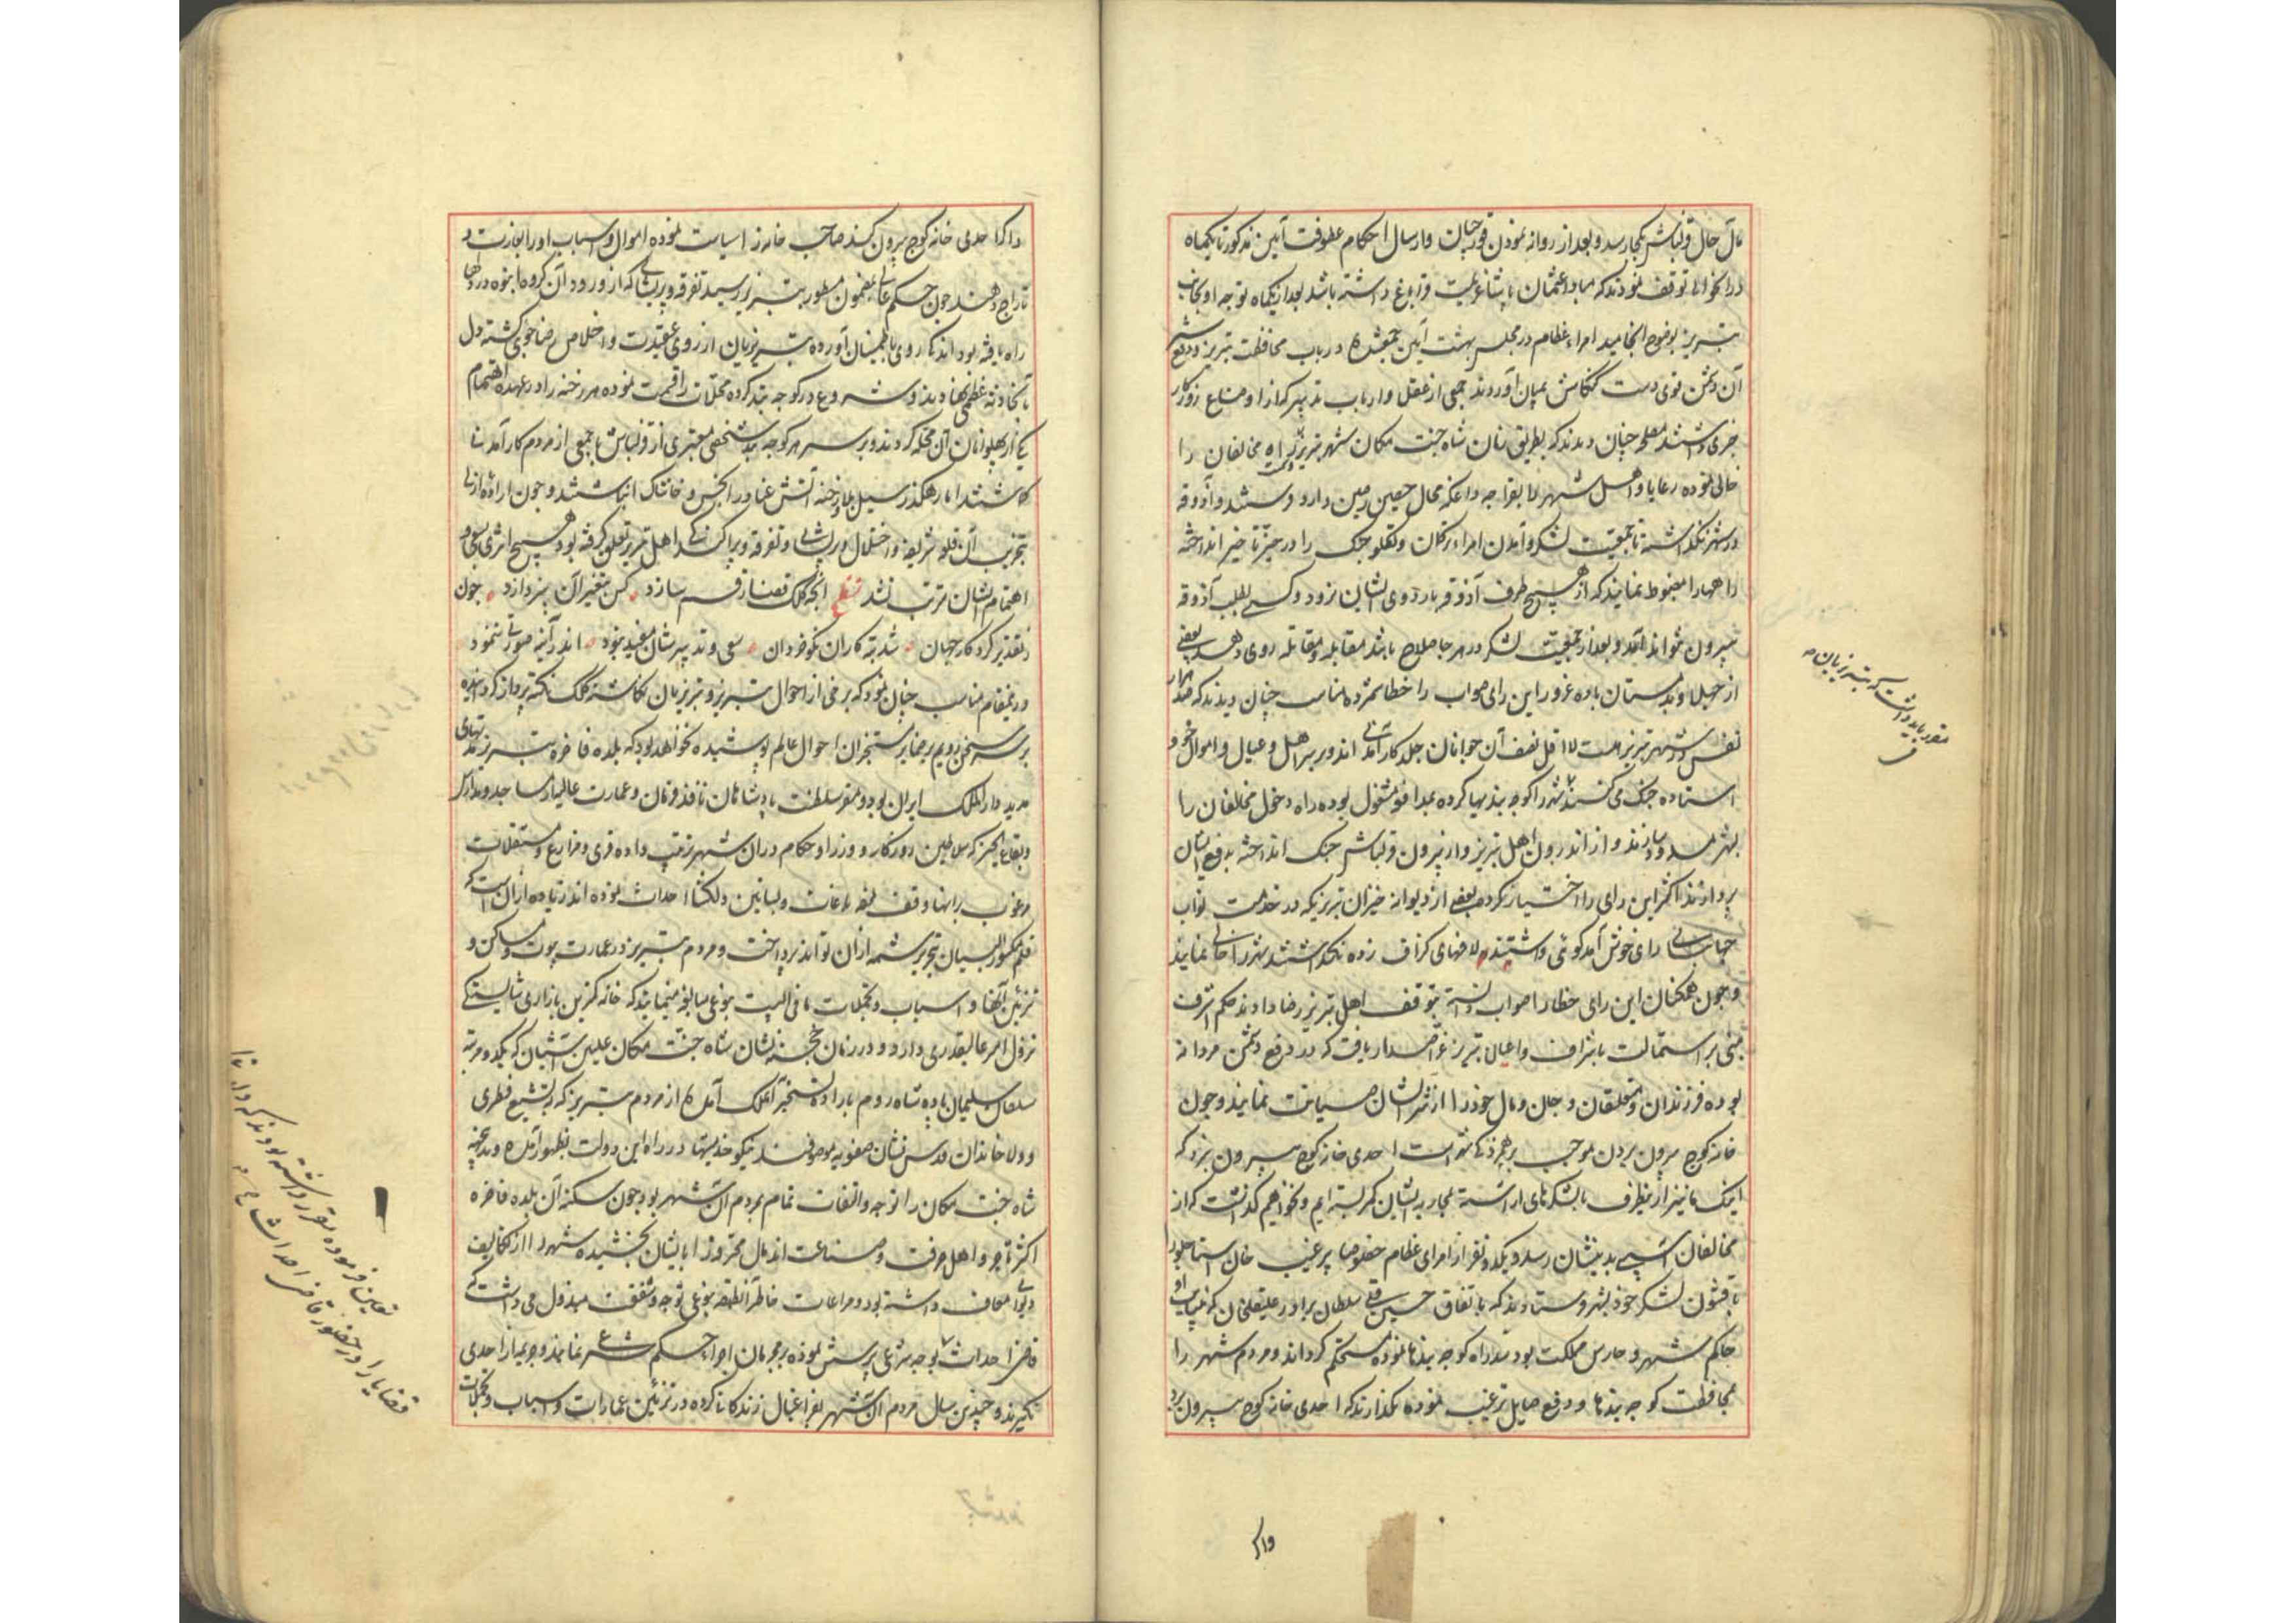 مآل حال قزلباش بکجا رسد و بعد از روانه نمودن قورچیان و ارسال احکام عطوفت آیین مذکور تا یکماه
در آنحوالی توقف نمودند که مبادا عثمان پاشا عزیمت قراباغ داشته باشد بعد از یکماه توجه او بجانب
تبریز بوضوح انجامید امراء عظام در مجلس بهشت آیین جمع شده در باب محافظت تبریز و دفع شر
آن دشمن قوی دست کنکاش بمیان آوردند جمعی از عقلا و ارباب تدبیر که از اوضاع روزکار
خبری داشتند مصلحت چنان دیدند که بطریق زمان شاه جنت مکان شهر تبریز و سر راه مخالفان را
خالی نموده رعایا و اهل شهر را بقراجه داغ که محال حصین متین دارد فرستند و آذوقه
در شهر نکذاشته تا جمعیت لشکر و آمدن امراء ترکمان و تکلو جنک را در حیز تأخیر انداخته
راهها را مضبوط نمایند که از هیچ طرف آذوقه باردوی ایشان نرود و کسی بطلب آذوقه
بیرون نتواند آمد و بعد از جمعیت لشکر در هر جا صلاح باشد مقابله و مقاتله روی دهد بعضی
از جهلا و بدمستان باده غرور این رای صواب را خطا شمرده مناسب چنان دیدند که صد هزار
نفس در شهر تبریز است لااقل نصف آن جوانان جلد کار آمدنی اند و بر سر اهل و عیال و اموال خود
استاده جنک می کنند شهر را کوچه بندیها کرده بمدافعه مشغول بوده راه دخول مخالفان را
بشهر مسدود سازند و از اندرون اهل تبریز و از بیرون قزلباش جنک انداخته بدفع ایشان
پردازند اکثر این رای را اختیار کرده بعضی از دیوانه خیزان تبریز که در خدمت نواب
جهانبانی راه خوش آمد کوئی داشتند لافهای کزاف زده نکذاشتند شهر را خالی نمایند
و چون همکنان این رای خطا را صواب دانسته بتوقف اهل تبریز رضا دادند حکم اشرف
مبنی بر استمالت باشراف و اعیان تبریز عز اصدار یافت که در دفع دشمن مردانه
بوده فرزندان و متعلقان و جان و مال خود را از شر ایشان صیانت نمایند و چون
خانه کوچ بیرون بردن موجب بر هم خوردکی شهر است احدی خانه کوچ بیرون نبرد که
اینک ما نیز از اینطرف با لشکرهای آراسته بمحاربه ایشان کمر بسته ایم و نخواهیم کذاشت که از
مخالفان آسیبی بدیشان رسد و یکدو نفر از امرای عظام خصوصا پیر غیب خان استاجلو را
با قشون لشکر خود بشهر فرستادند که باتفاق حسین قلی سلطان برادر علیقلی خان که بنیابت او
حاکم شهر و حارس مملکت بود سد راه کوچه بندها نموده مستحکم کرداند و مردم شهر را
بمحافظت کوچه بندها و دفع صایل ترغیب نموده نکذارند که احدی خانه کوچ بیرون برد
مقرر باید داشت که تبریزیان
و اکر
و اکر احدی خانه کوچ بیرون کند صاحب خانه را سیاست نموده اموال و اسباب او را بغارت و
تاراج دهند چون حکم عالی بمضمون مسطور بتبریز رسید تفرقه و پریشانی که از ورود آن کروه انبوه در دلها
راه یافته بود اندکی روی باطمینان آورده تبریزیان از روی عقیدت و اخلاص رضاجوی کشته دل
بآنحادثه عظمی نهادند و شروع در کوچه بند کرده محلات را قسمت نموده هر رخنه را در عهده اهتمام
یکی از پهلوانان آن محله کردند و بر سر هر کوچه بند شخصی معتبری از قزلباش با جمعی از مردم کار آمدنی
کماشتند اما رهکذر سیل بلا و رخنه آتش عنا را بخس و خاشاک انباشتند و چون اراده ازلی
بتخریب آن بلده شریفه و اختلال و پریشانی و تفرقه و پراکندکی اهل تبریز تعلق کرفته بود هیچ اثری بسعی و
اهتمام ایشان مترتب نشد قطعه آنچه کلک قضا رقم سازد کس بتغییر آن نپردازد چون
ز تقدیر کردکار جهان شد تبه کاران نکو خردان سعی و تدبیرشان مفید نبود اندر آیینه صورتی ننمود
در ینمقام مناسب چنان نمود که برخی از احوال تبریز و تبریزیان نکاشته کلک نکته پرداز کردانیده
بر سر سخن رویم بر ضمایر مستخبران احوال عالم پوشیده نخواهد بود که بلده فاخره تبریز مدتهای
مدید دار الملک ایران بود و مقر سلطنت پادشاهان نافذ فرمان و عمارت عالیه از مساجد و مدارس
و بقاع الخیر که سلاطین روزکار و وزرا و حکام در آن شهر ترتیب داده قری و مزارع و مستغلات
مرغوب بر انها وقف نموده باغات و بساتین دلکشا احداث نموده اند زیاده از آن است که
قلم مکسور اللسان بتحریر شمه از آن تواند پرداخت و مردم تبریز در عمارت بیوت و مساکن و
تزیین آنها و اسباب و تجملات ما فی البیت بنوعی مبالغه مینمایند که خانه کمترین بازاری شایستکی
نزول امرء عالیقدری دارد و در زمان خجسته نشان شاه جنت مکان علیین آشیان که یکدو مرتبه
سلطان سلیمان پادشاه روم باراده تسخیر آنملک آمده از مردم تبریز که بتشیع فطری
و ولاء خاندان قدس نشان صفویه موصوفند نیکو خدمتیها در راه این دولت بظهور آمده و بدینجهة
شاه جنت مکان را توجه و التفات تمام بمردم آن شهر بود چون سکنه آن بلده فاخره
اکثر تاجر و اهل حرفت و صناعت اند مال محترفه را بایشان بخشیده شهر را از تکالیف
دیوانی معاف داشته بود و مراعات خاطر آنطبقه بنوعی توجه و شفقت مبذول می داشت که
قاضی احداث بوجه شرعی پرسش نموده بر مجرمان اجراء حکم شرع نمایند و جریمه از احدی
نکیرند و چندین سال مردم آن شهر بفراغبال زندکانی کرده در تزئین عمارات و اسباب و تجملات
تعیین فرموده مقرر داشته بودند که داروغه
قضایا را در حضور قاضی احداث